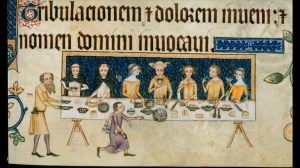 Tribulacionem ⁊ dolorem inueni: ⁊
nomen domini inuocaui